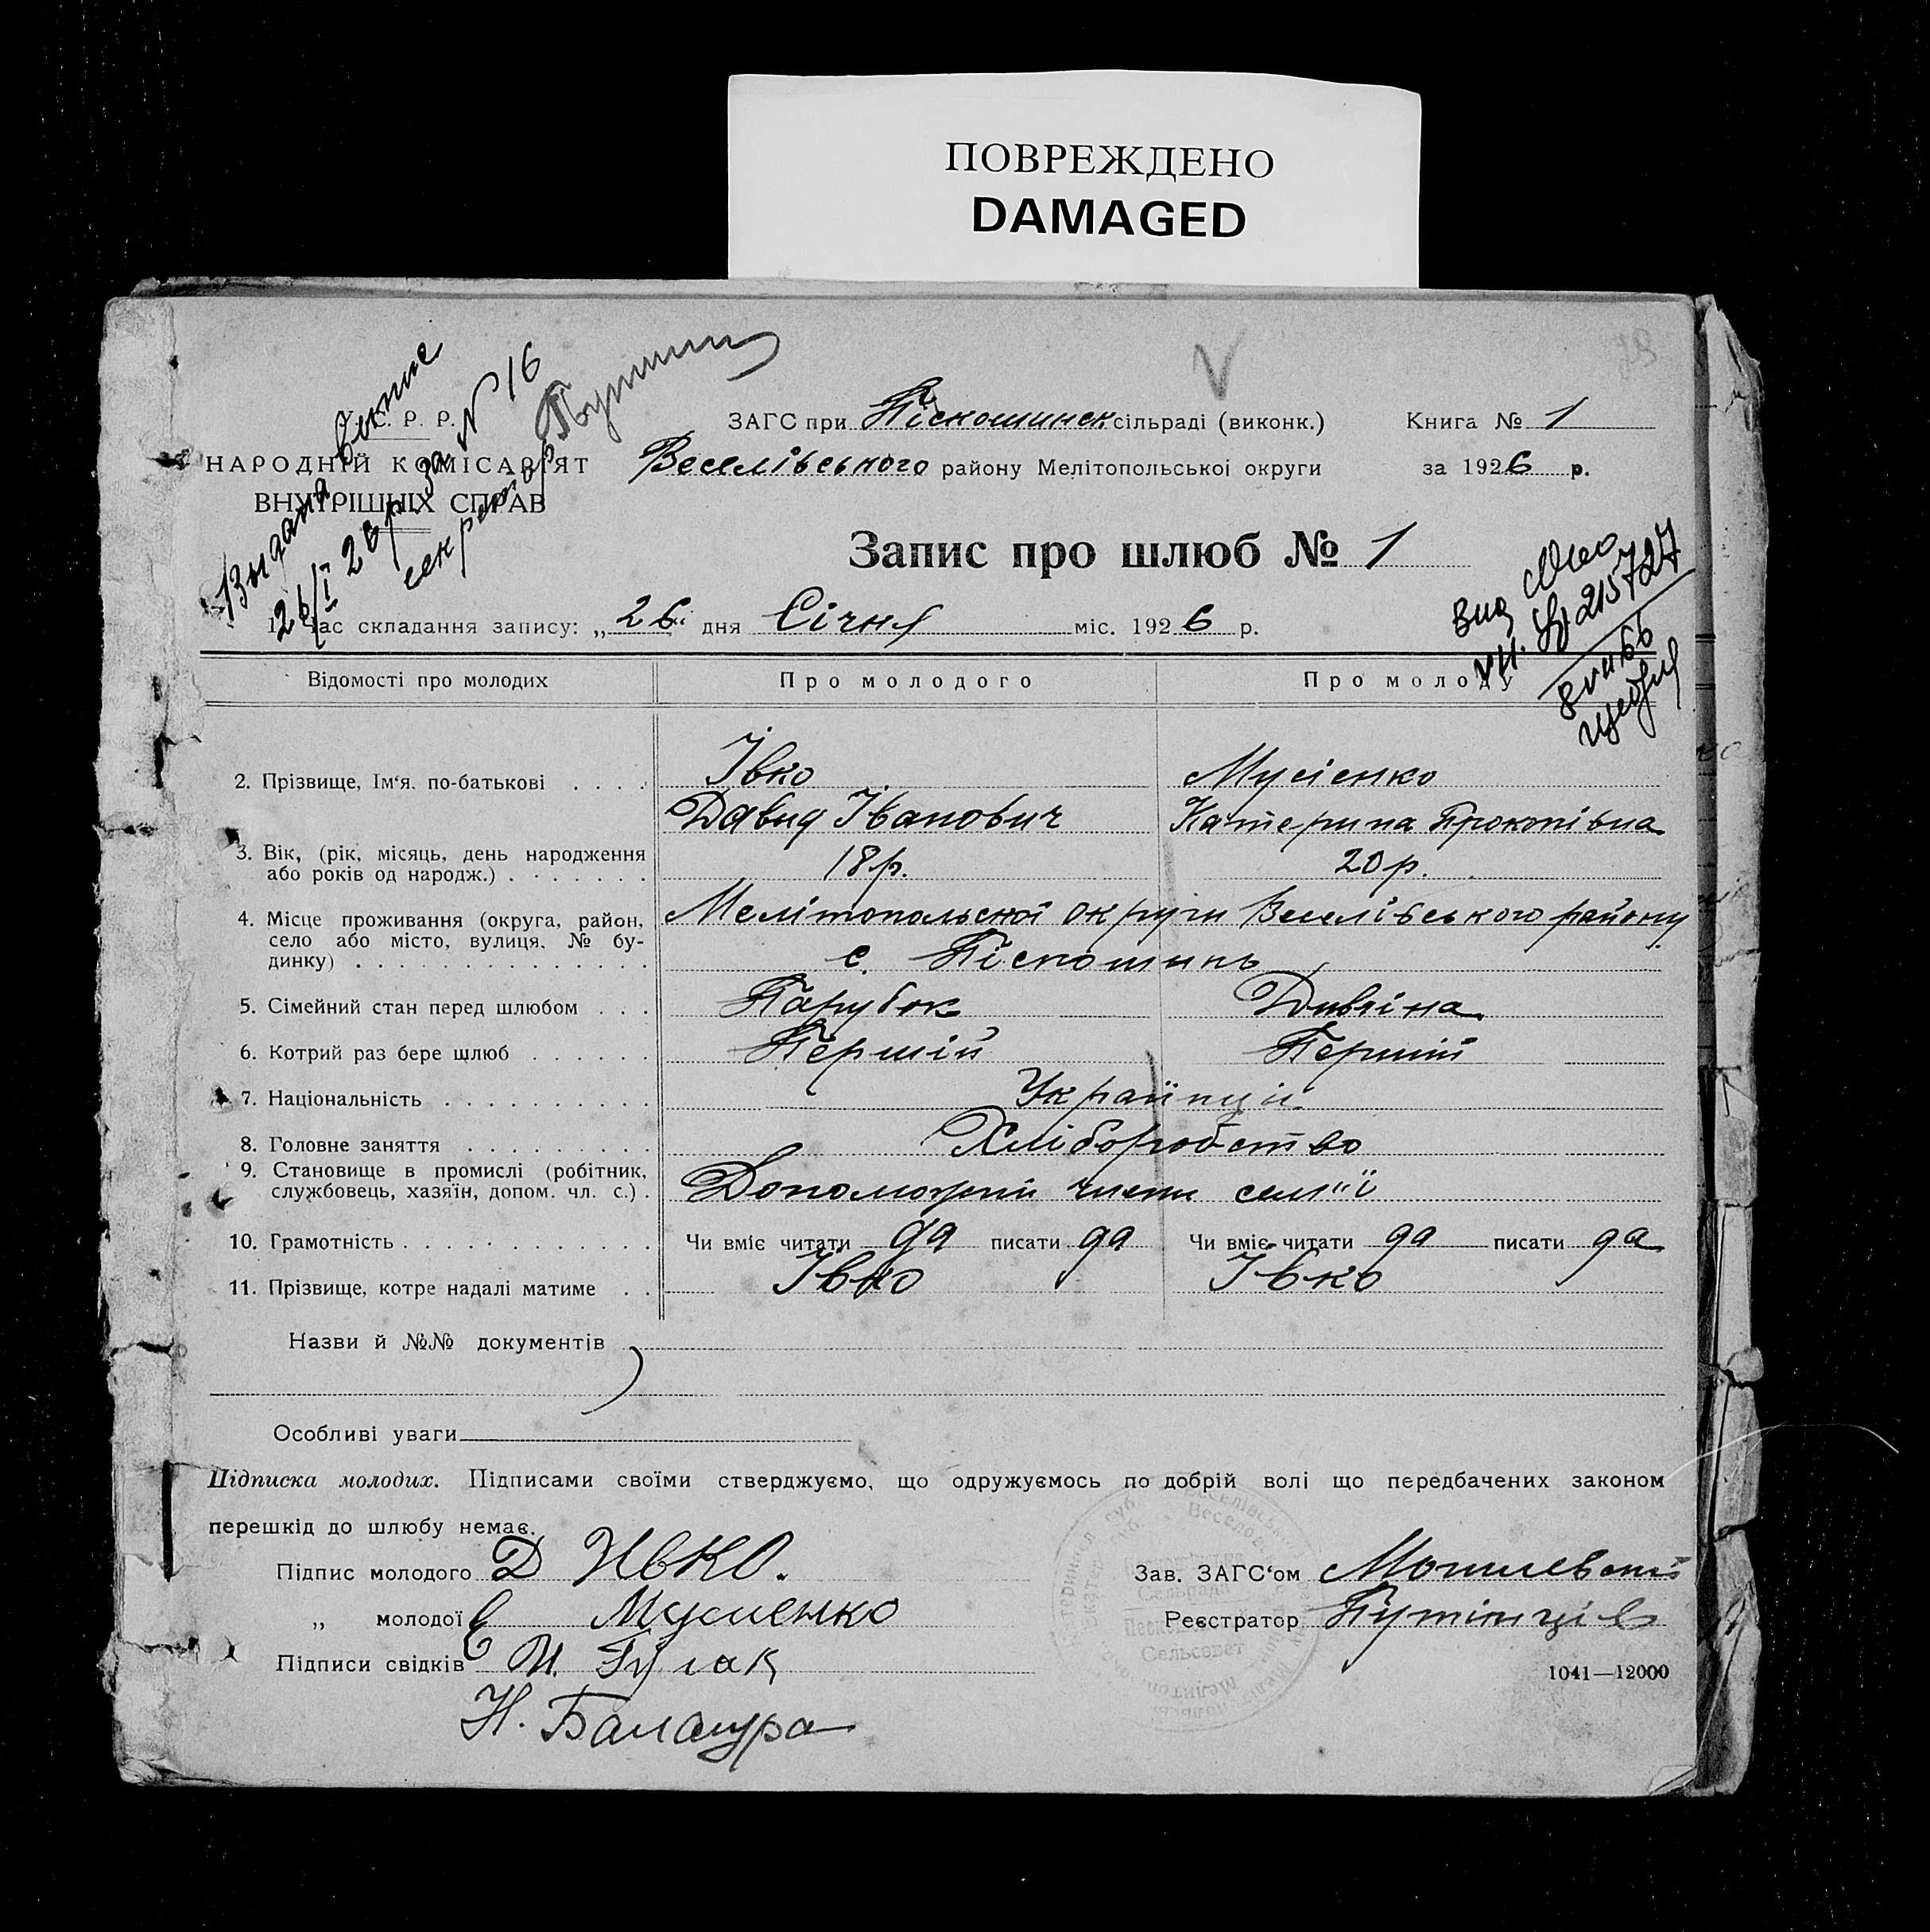 ПОВРЕЖДЕНО
DAMAGED
С. Р. Р.
НАРОДНІЙ КОМІСАРІЯТ
ВНУТРІШНІХ СПРАВ
Выдана
26/I 26 р. за № 16
секретар
ЗАГС при Піскошинск сільраді (виконк.) Книга № 1
Веселівського району Мелітопольської округи за 1926 р.
Запис про шлюб № 1
Вид
215727
8 66
1. Час складання запису: „26" дня Січня міс. 1926 р.
Відомості про молодих Про молодого Про молоду
2. Прізвище, Ім'я, по-батькові . . . . Івко Мусієнко
Давид Іванович Катерина Прокопівна
3. Вік, (рік, місяць, день народження
або років од народж.) . . . . . . . 18 р. 20 р.
4. Місце проживання (округа, район, Мелітопольської округи Веселівського району
село або місто, вулиця, № бу-
динку) . . . . . . . . . . . . . . с. Піскошинь
5. Сімейний стан перед шлюбом . . . Парубок Дивчіна
6. Котрий раз бере шлюб . . . . . . Першій Першій
7. Національність . . . . . . . . . . Українці
8. Головне заняття . . . . . . . . . Хліборобство
9. Становище в промислі (робітник,
службовець, хазяїн, допом. чл. с.) . члени сем"ї
10. Грамотність . . . . . . . . . . . . Чи вміє читати да писати да Чи вміє читати да писати да
11. Прізвище, котре надалі матиме . . Івко Івко
Назви й №№ документів
Особливі уваги
Підписка молодих. Підписами своїми стверджуємо, що одружуємось по добрій волі що передбачених законом
перешкід до шлюбу немає.
Підпис молодого Д Ивко. Зав. ЗАГС'ом Могилевский
„ молодої Е Мусиенко Реєстратор
Підписи свідків И. Гулак
Н. Балацура
Сельрада
Сельсовет
1041—12000